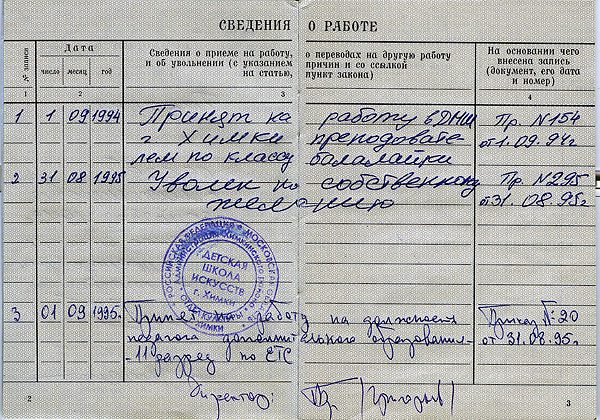 СВЕДЕНИЯ О РАБОТЕ
№ записи
Дата
число месяц год
Сведения о приеме на работу, о переводах на другую работу
и об увольнении (с указанием причин и со ссылкой
на статью, пункт закона)
На основании чего
внесена запись
(документ, его дата
и номер)
1 2 3 4
1 1 09 1994 Принят на работу в ДШИ Пр. N154
г Химки преподавате- от 1.09.94г.
лем по классу балалайки
2 31 08 1995 Уволен по собственному Пр. N295
желанию от 31.08.95г
РОССИЙСКАЯ ФЕДЕРАЦИЯ МОСКОВСКАЯ
АДМИНИСТРАЦИЯ ХИМКИНСКОГО
ОТДЕЛ КУЛЬТУРЫ
Г. ХИМКИ
ДЕТСКАЯ
ШКОЛА
ИСКУССТВ
г. ХИМКИ
3 01 09 1995. на работу на должность Приказ №20
педагога дополнительного образования- от 31.08.95г.
-11 разряд по ЕТС
Директор:
2 3